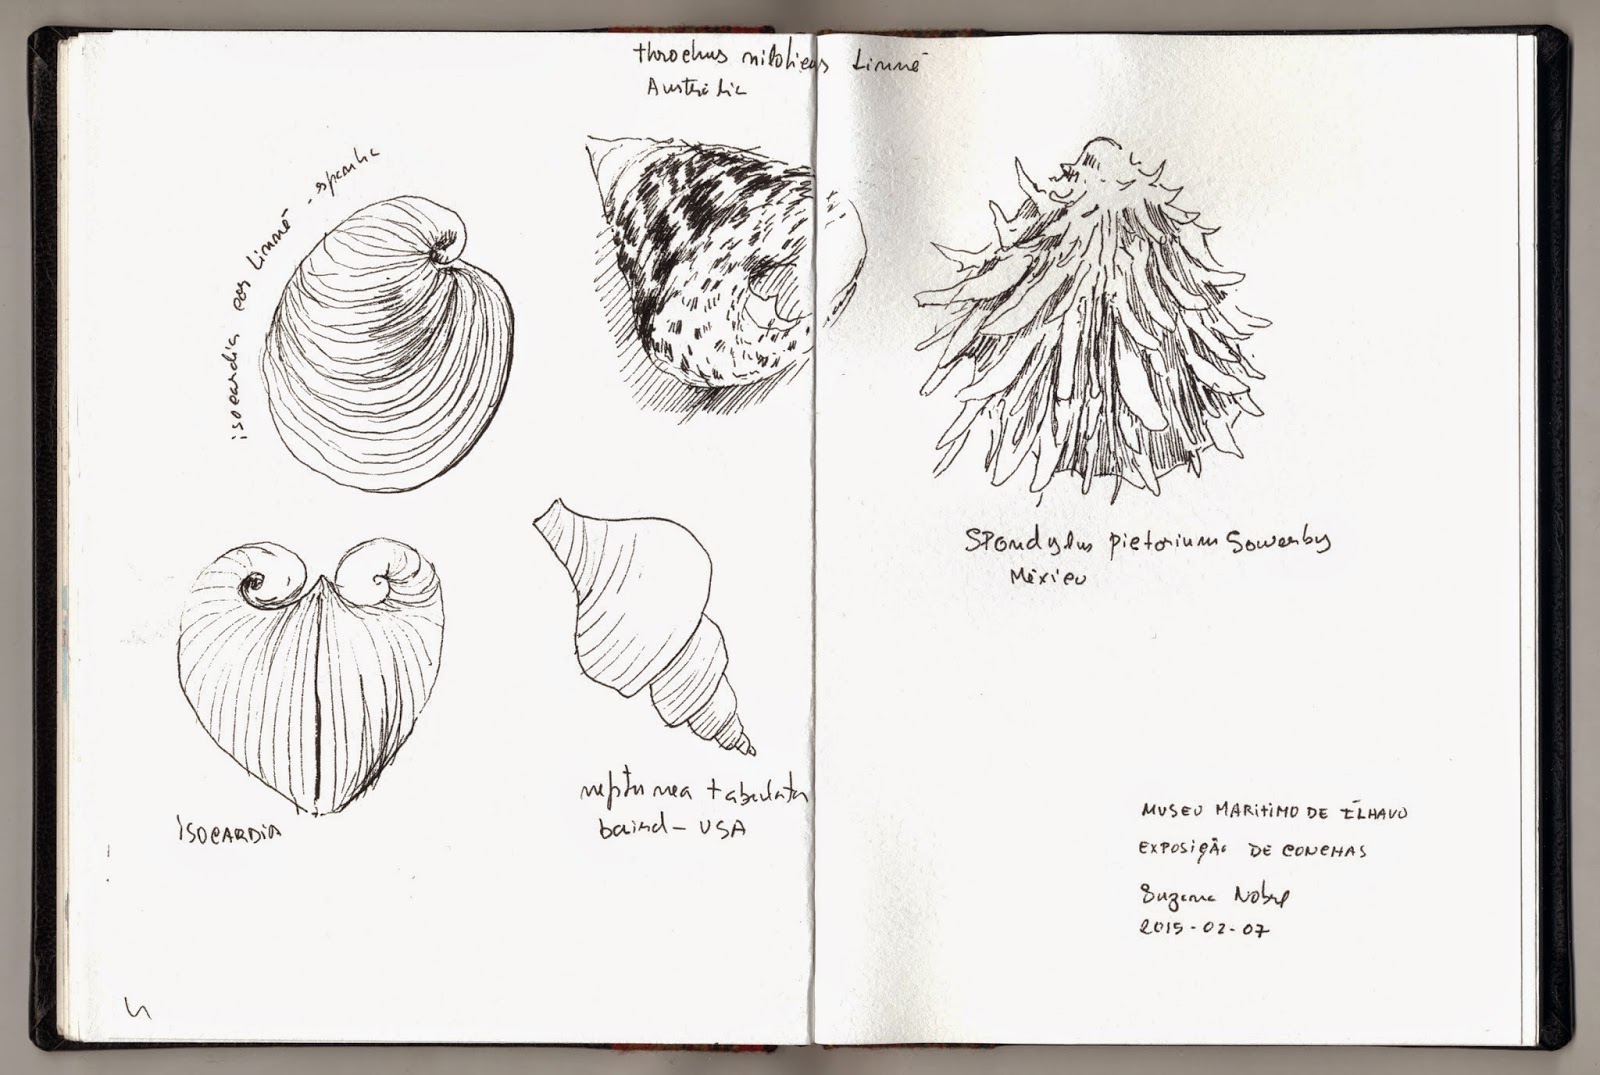 throchus niloticus Linné
Austrália
isocardia cos Linné - espanha
Spondylus pictorium Sowerby
México
neptunea tabulata
baird - USA
ISOCARDIA
MUSEU MARITIMO DE ÍLHAVO
EXPOSIÇÃO DE CONCHAS
Suzana Nobre
2015-02-07